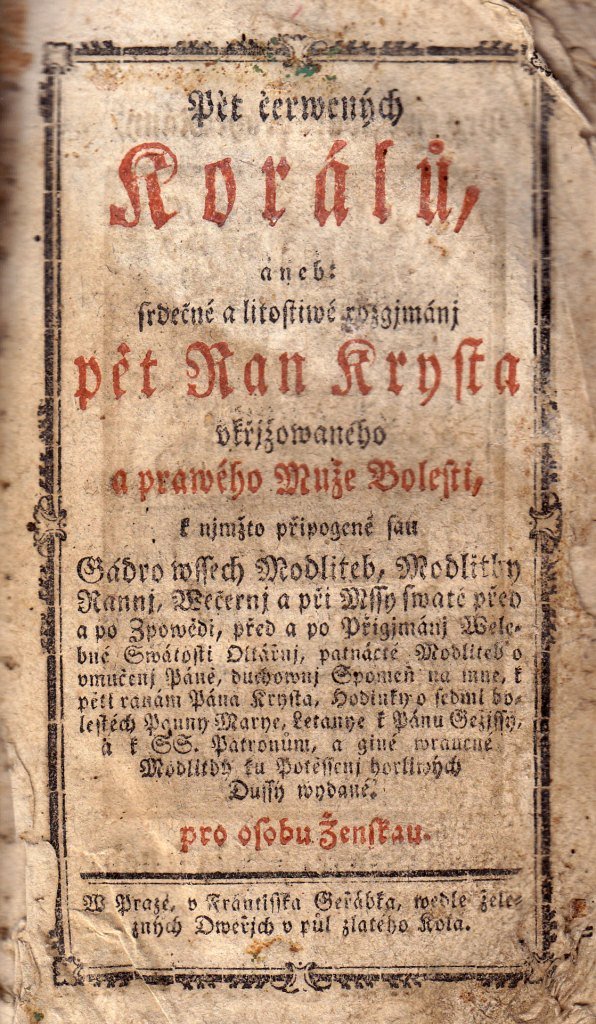 Pět červených
Korálů,
aneb:
srdečné a litostiwé rozgjmánj
pět Ran Krysta
vkřjžowaného
a prawého Muže Bolesti,
k njmžto připogené sau
Gádro wssech Modliteb, Modlitby
Rannj, Wečernj a při Mssy swaté před
a po Zpowědi, před a po Přigjmánj Wele-
bné Swátosti Oltářnj, patnácté Modliteb o
vmučenj Páně, duchownj Spomeň na mne, k
pěti ranám Pána Krysta, Hodinky o sedmi bo-
lestěch Panny Marye, Letanye k Pánu Gežissy,
a k SS. Patronům, a giné wraucné
Modlitby ku Potěssenj horliwých
Dussý wydané.
pro osobu Ženskau.
W Praze, v Frantisska Geřábka, wedle žele-
zných Dweřjch v půl zlatého Kola.